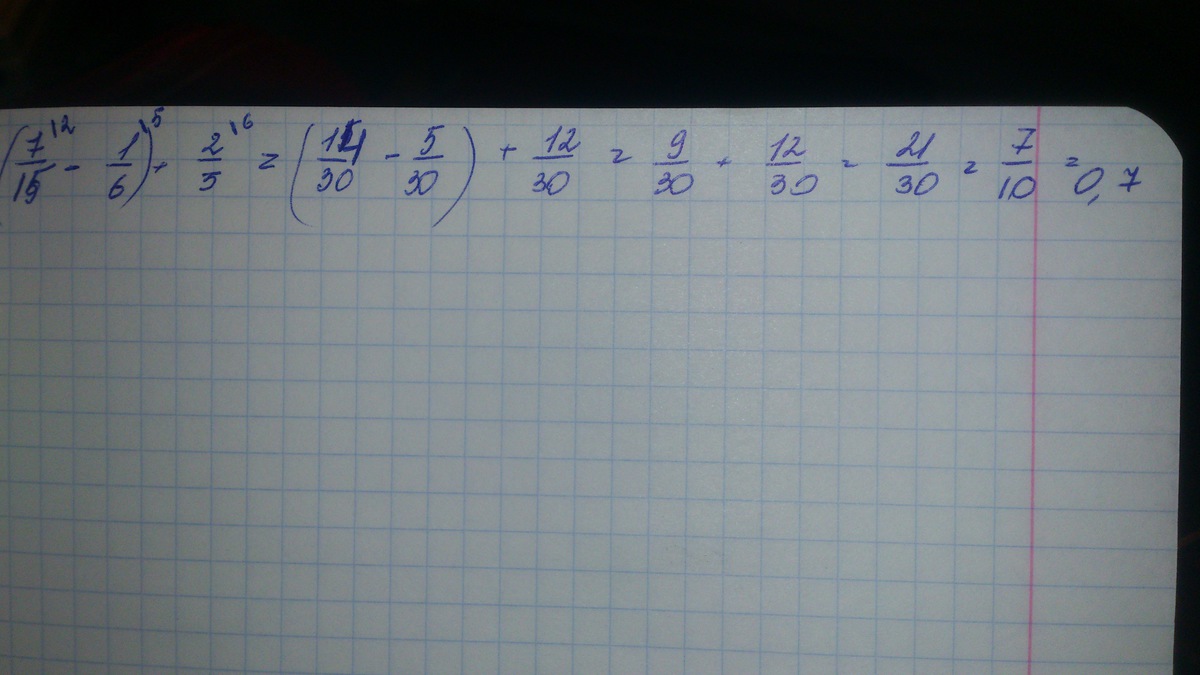 (7/15^\2 - 1/6^\5) + 2/5^\6 = (14/30 - 5/30) + 12/30 = 9/30 + 12/30 = 21/30 = 7/10 = 0,7